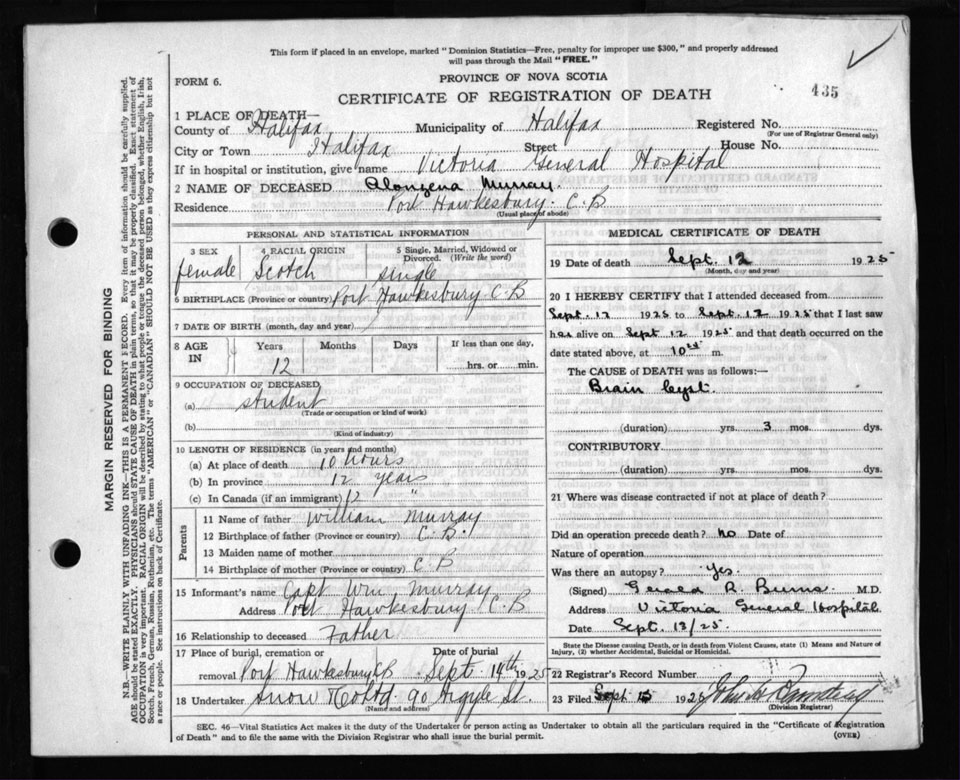 This form if placed in an envelope, marked "Dominion Statistics—Free, penalty for improper use $300," and properly addressed
will pass through the Mail "FREE."
FORM 6.
PROVINCE OF NOVA SCOTIA
435
CERTIFICATE OF REGISTRATION OF DEATH
1 PLACE OF DEATH—
County of Halifax Municipality of Halifax Registered No.
(For use of Registrar General only)
City or Town Halifax Street House No.
If in hospital or institution, give name Victoria General Hospital
2 NAME OF DECEASED Alonzena Murray
Residence Port Hawkesbury. C.B
(Usual place of abode)
PERSONAL AND STATISTICAL INFORMATION
3 SEX 4 RACIAL ORIGIN 5 Single, Married, Widowed or Divorced. (Write the word)
female Scotch single
6 BIRTHPLACE (Province or country) Port Hawkesbury C.B
7 DATE OF BIRTH (month, day and year)
8 AGE IN Years Months Days If less than one day,
12 hrs. or min.
9 OCCUPATION OF DECEASED
(a) student
(Trade or occupation or kind of work)
(b)
(Kind of industry)
10 LENGTH OF RESIDENCE (in years and months)
(a) At place of death 10 hours
(b) In province 12 years
(c) In Canada (if an immigrant) 12 "
Parents
11 Name of father William Murray
12 Birthplace of father (Province or country) C.B.
13 Maiden name of mother
14 Birthplace of mother (Province or country) C B
15 Informant's name Capt Wm Murray
Address Port Hawkesbury C.B
16 Relationship to deceased Father
17 Place of burial, cremation or Date of burial
removal Port Hawkesbury CB Sept. 14th 1925
18 Undertaker Snow & Co Ltd. 90 Argyle St.
(Name and address)
MEDICAL CERTIFICATE OF DEATH
19 Date of death Sept. 12 1925
(Month, day and year)
20 I HEREBY CERTIFY that I attended deceased from
Sept. 12 1925 to Sept. 12 1925 that I last saw
her alive on Sept 12 1925 and that death occurred on
date stated above, at 10 m.
The CAUSE of DEATH was as follows:—
Brain Cyst.
(duration) yrs. 3 mos. dys.
CONTRIBUTORY
(duration) yrs. mos. dys.
21 Where was disease contracted if not at place of death?
Did an operation precede death? No Date of
Nature of operation
Was there an autopsy? Yes.
(Signed) Gerald R. Burns M.D.
Address Victoria General Hospital
Date Sept. 13/25.
State the Disease causing Death, or in death from Violent Causes, state (1) Means and Nature of
Injury, (2) whether Accidental, Suicidal or Homicidal.
22 Registrar's Record Number
23 Filed Sept 15 1925
(Division Registrar)
SEC. 46—Vital Statistics Act makes it the duty of the Undertaker or person acting as Undertaker to obtain all the particulars required in the "Certificate of Registration
of Death" and to file the same with the Division Registrar who shall issue the burial permit.
(OVER)
MARGIN RESERVED FOR BINDING
N.B.—WRITE PLAINLY WITH UNFADING INK—THIS IS A PERMANENT RECORD. Every item of information should be carefully supplied.
AGE should be stated EXACTLY. PHYSICIANS should STATE CAUSE OF DEATH in plain terms, so that it may be properly classified. Exact statement of
OCCUPATION is very important. RACIAL ORIGIN will be described by stating to what people or tongue the deceased person belonged, whether English, Irish,
Scotch, French, German, Russian, Ruthenian, etc. The terms "AMERICAN" or "CANADIAN" SHOULD NOT BE USED as they express citizenship but not
a race or people. See instructions on back of Certificate.